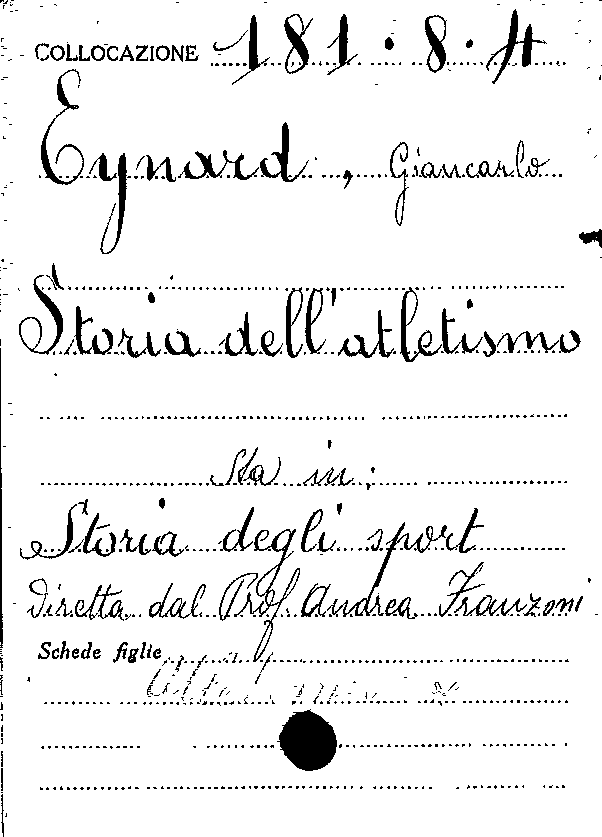 COLLOCAZIONE 181.8.4
Eynard, Giancarlo
Storia dell'atletismo
Sta in:
Storia degli sport
Diretta dal Prof. Andrea Franzoni
Schede figlie